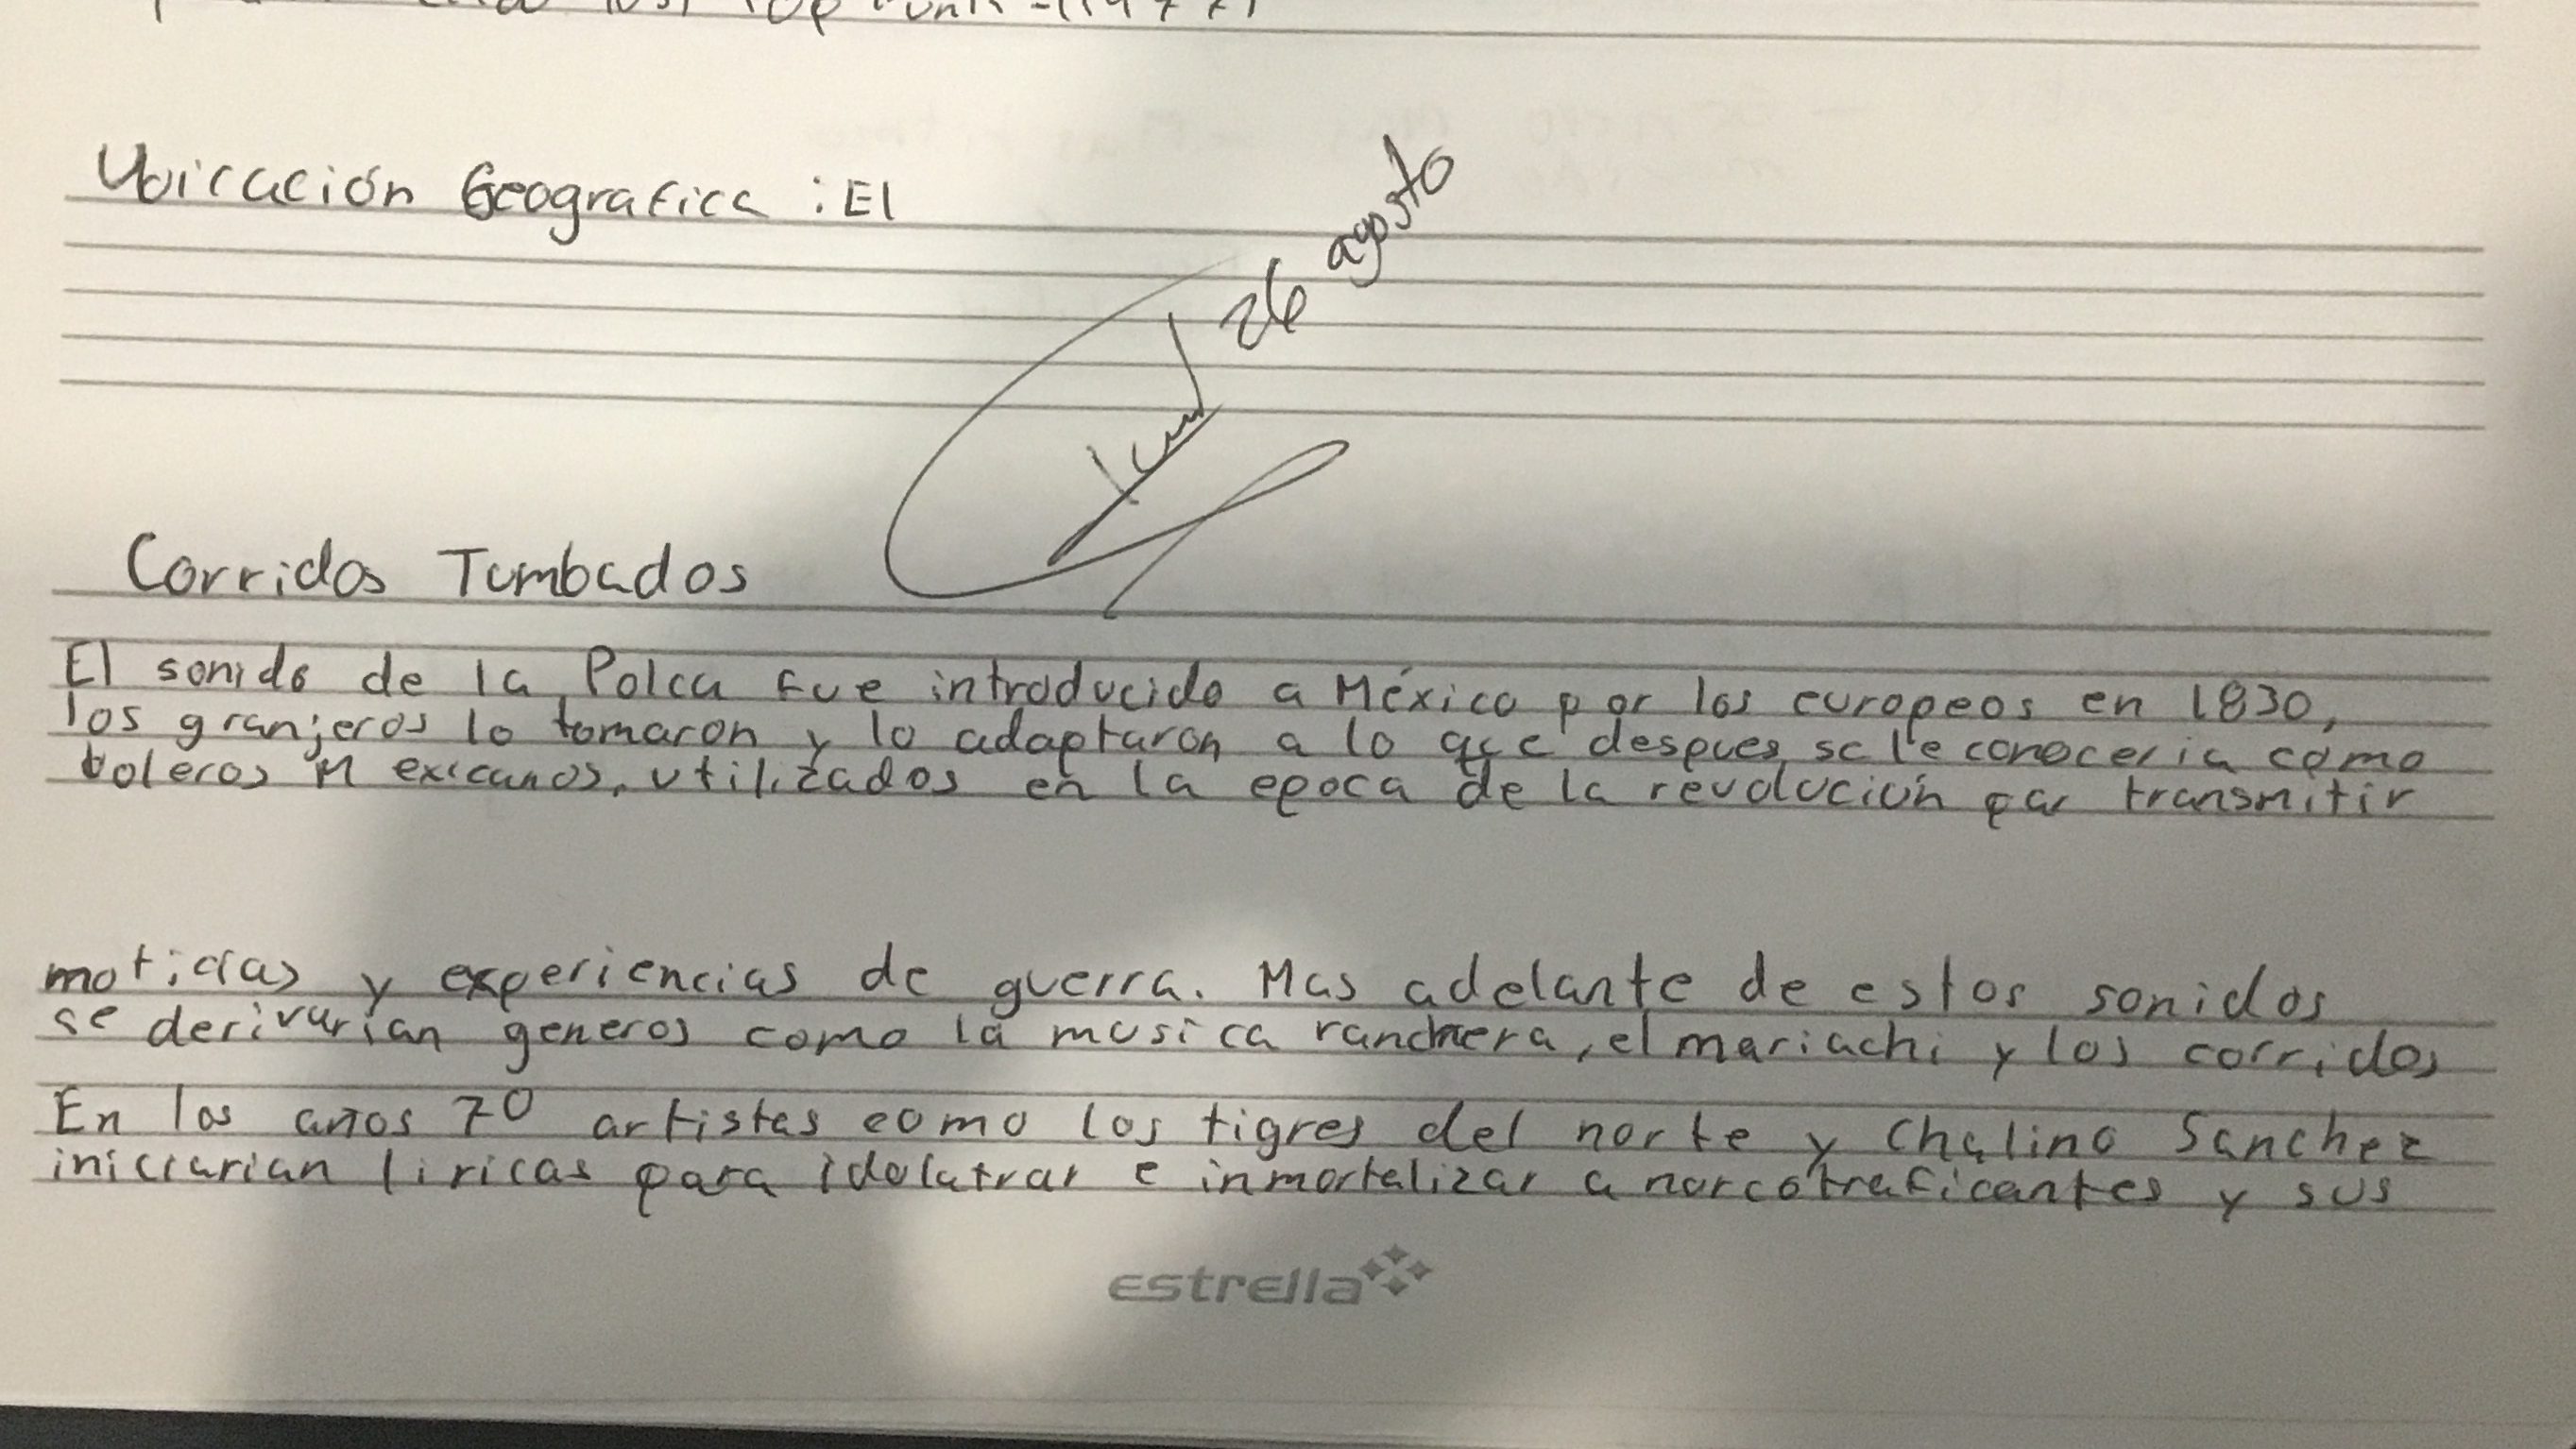 Ubicación Geografica : El
26 agosto
Corridos Tumbados
El sonido de la Polca fue introducido a México por los europeos en 1830,
los granjeros lo tomaron y lo adaptaron a lo que despues se le conoceria como
boleros Mexicanos, utilizados en la epoca de la revolución par transmitir
moticias y experiencias de guerra. Mas adelante de estos sonidos
se derivarian generos como la musica ranchera, el mariachi y los corridos
En los años 70 artistas como los tigres del norte y Chalino Sanchez
iniciarian liricas para idolatrar e inmortalizar a narcotraficantes y sus
estrella